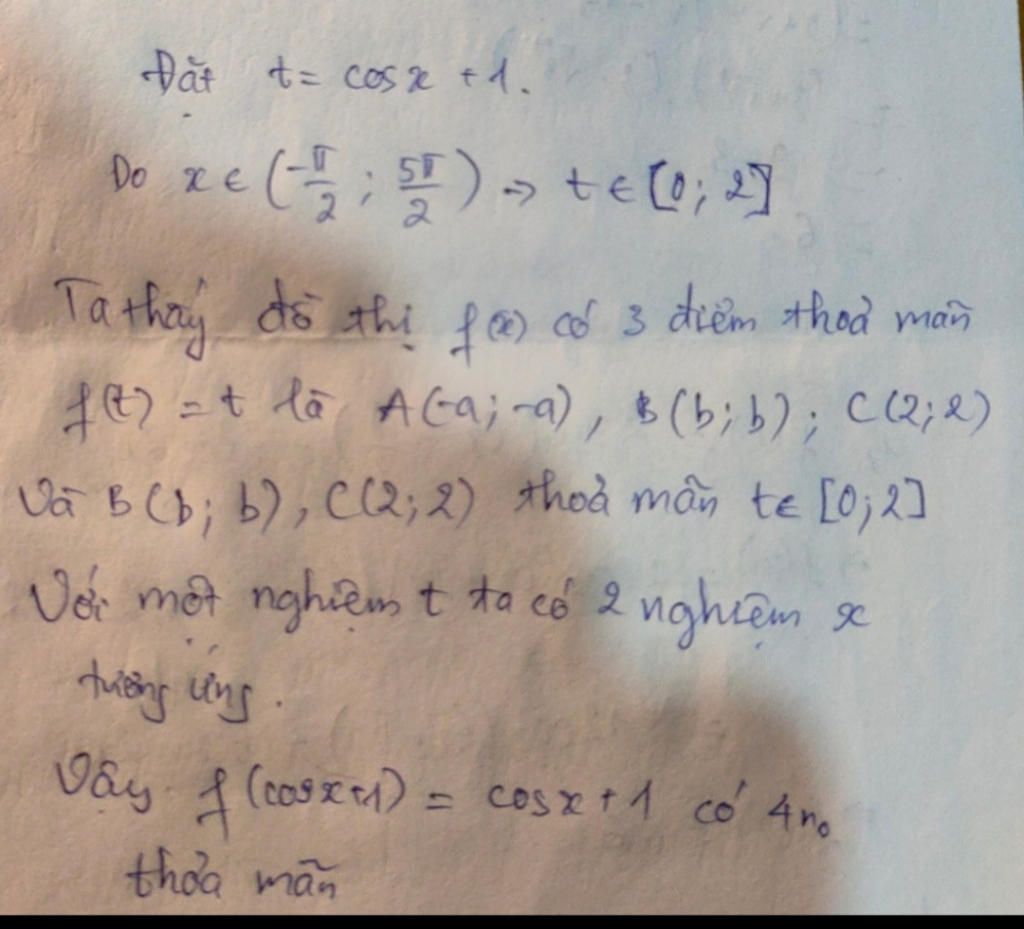 Đặt t = cosx + 1.
Do x ∈ (-π/2 ; 5π/2) → t ∈ [0; 2]
Ta thấy đồ thị f(x) có 3 điểm thoả mãn
f(t) = t là A(-a; -a), B(b; b); C(2; 2)
Và B(b; b), C(2; 2) thoả mãn t ∈ [0; 2]
Với một nghiệm t ta có 2 nghiệm x
tương ứng.
Vậy f(cosx+1) = cosx + 1 có 4 no
thỏa mãn